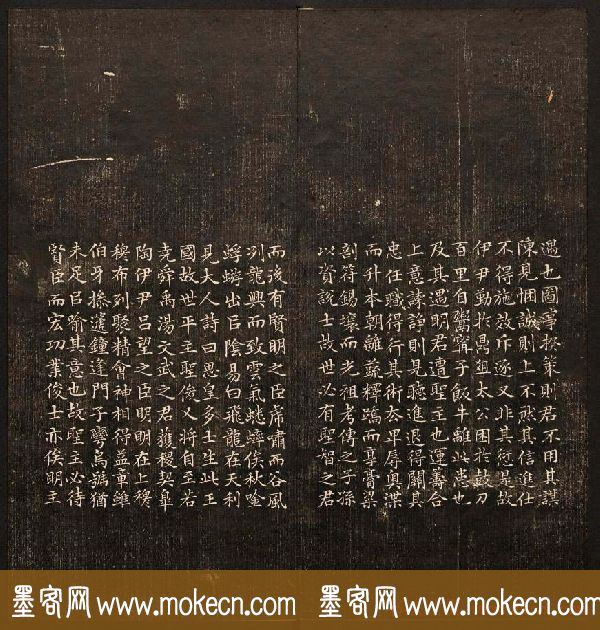 遇也圖事揆策則君不用其謀
陳見悃誠則上不然其信進仕
不得施效斥逐又非其愆是故
伊尹勤於鼎俎太公困於鼓刀
百里自鬻甯子飯牛離此患也
及其遇明君遭聖主也運籌合
上意諫諍則見聽進退得關其
忠任職得行其術去卑辱奧渫
而升本朝離蔬釋蹻而享膏粱
剖符錫壤而光祖考傳之子孫
以資說士故世必有聖智之君
而後有賢明之臣虎嘯而谷風
冽龍興而致雲氣蟋蟀俟秋唫
蜉蝣出㠯陰易曰飛龍在天利
見大人詩曰思皇多士生此王
國故世平主聖俊乂將自至若
堯舜禹湯文武之君獲稷契皋
陶伊尹呂望之臣明明在上穆
穆布列聚精會神相得益章雖
伯牙操遞鐘逢門子彎烏號猶
未足㠯喻其意也故聖主必待
賢臣而宏功業俊士亦俟明主
墨客网 www.mokecn.com 墨客网 www.mokecn.com